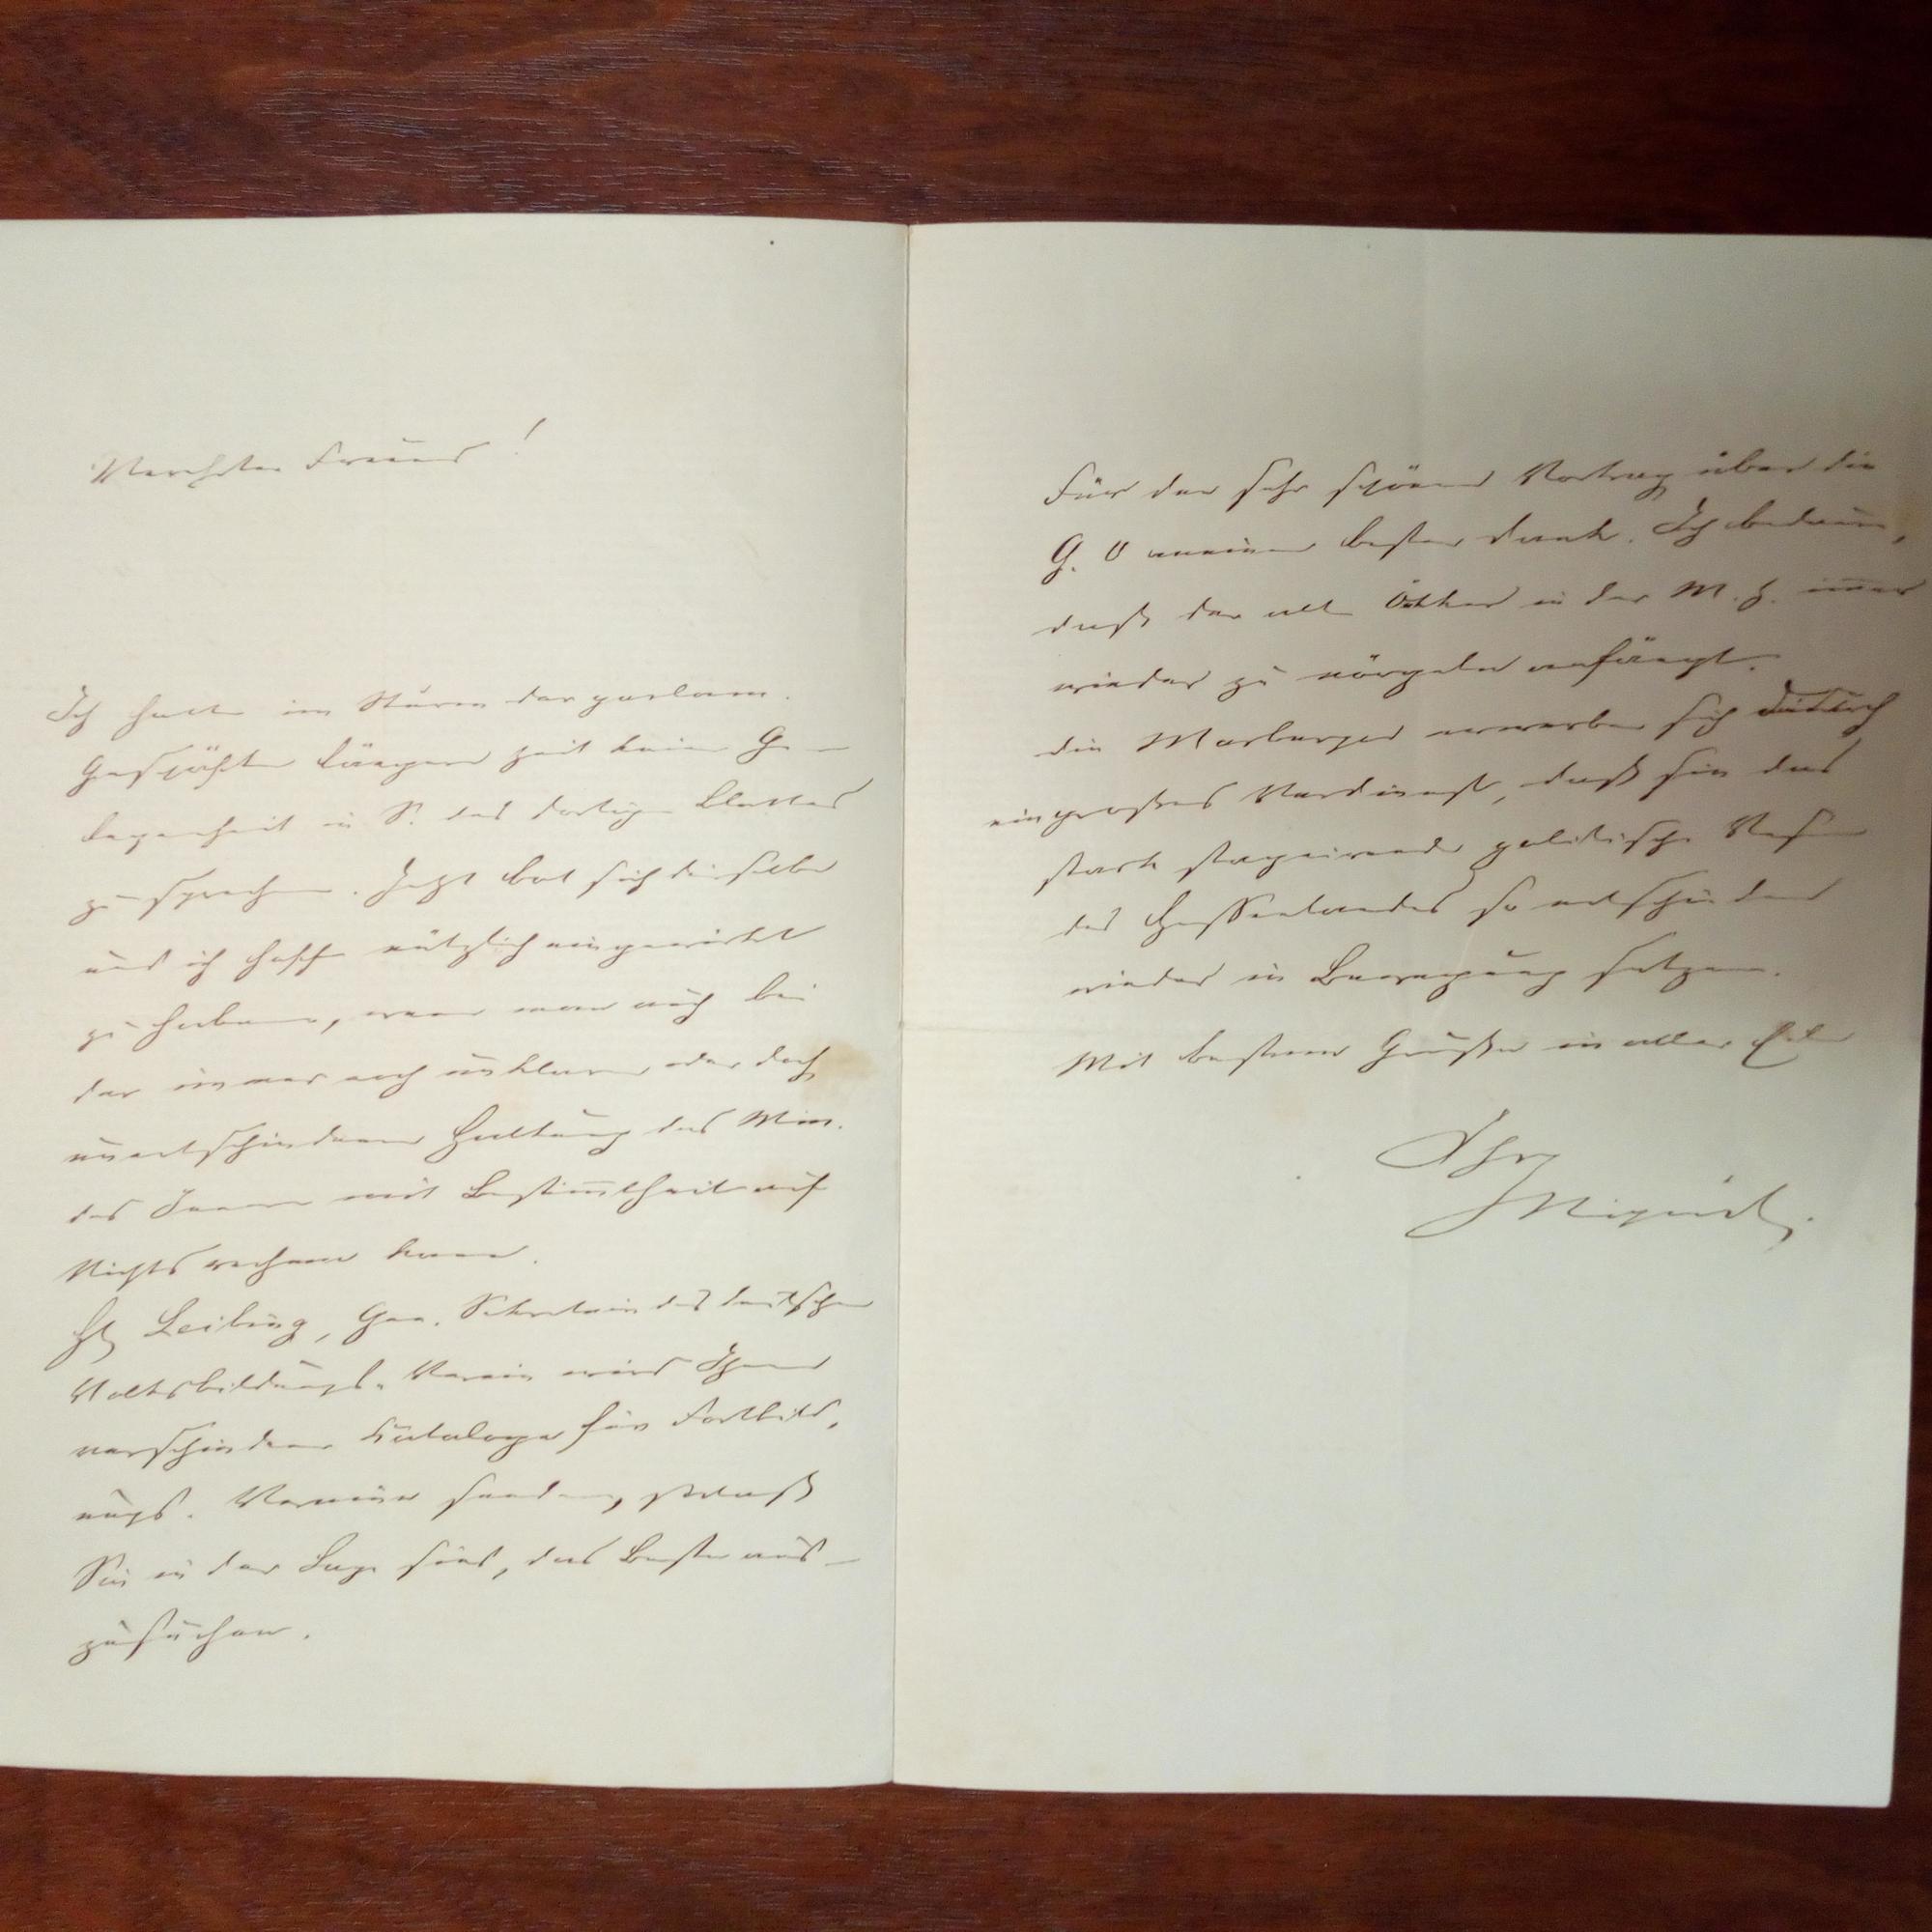 Verehrter Freund!
Ich hatte im Sturm der parlam.
Geschäfte längere Zeit keine Ge-
legenheit in S. des dortigen Blattes
zu sprechen. Jetzt bot sich dieselbe
und ich hoffe nützlich eingewirkt
zu haben, wenn man auch bei
der immer noch unklaren oder doch
unentschiedenen Haltung des Min.
des Innern mit Bestimtheit auf
Nichts rechnen kann.
H. Leibing, Gen. Sekretair des deutschen
Volksbildungs-Verein wird Ihnen
verschiedene Kataloge für Fortbild.
ungs. Vereine senden, sodaß
Sie in der Lage sind, das Beste aus-
zusuchen.
Für den sehr schönen Vortrag über die
G. O meinen besten Dank. Ich bedaure,
daß der alte Ötker in der M. Z. imer
wieder zu nörgeln anfängt.
Die Marburger erwerben sich dadurch
ein großes Verdienst, daß sie das
stark stagnirende politische Wesen
des Hessenlandes so entschieden
wieder in Bewegung setzen.
Mit besten Grüßen in aller Eile
Ihr
Miquel.